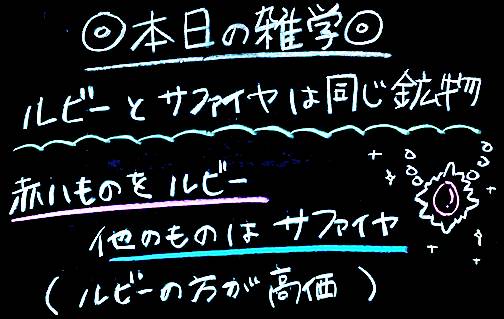 ◎本日の雑学◎
ルビーとサファイヤは同じ鉱物
赤いものをルビー
他のものはサファイヤ
(ルビーの方が高価)